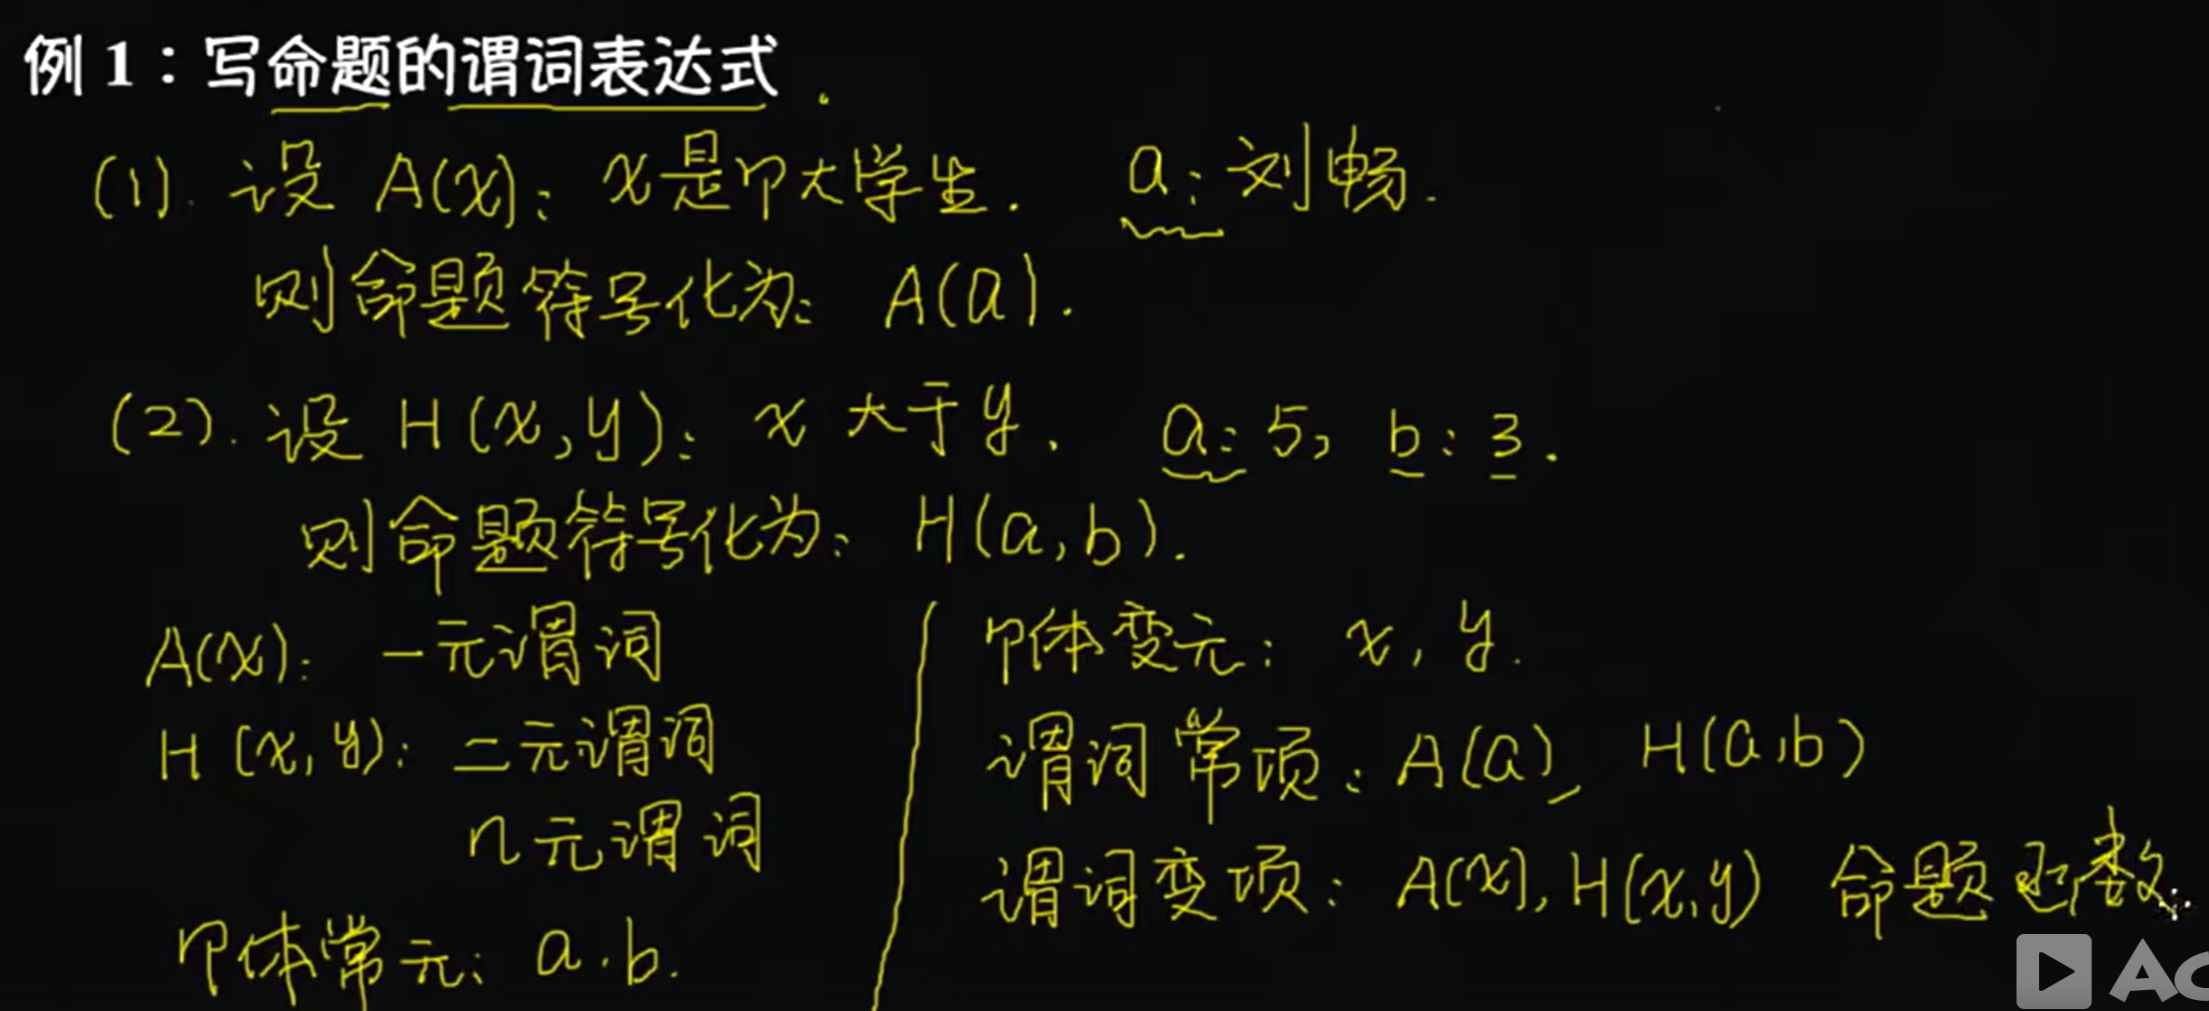 例 1：写命题的谓词表达式.
(1). 设 A(x): x是个大学生. a: 刘畅.
则命题符号化为: A(a).
(2). 设 H(x,y): x 大于 y. a: 5, b: 3.
则命题符号化为: H(a,b).
A(x): 一元谓词
H(x,y): 二元谓词
n元谓词
个体常元: a.b.
个体变元: x, y.
谓词常项: A(a), H(a,b)
谓词变项: A(x), H(x,y) 命题函数